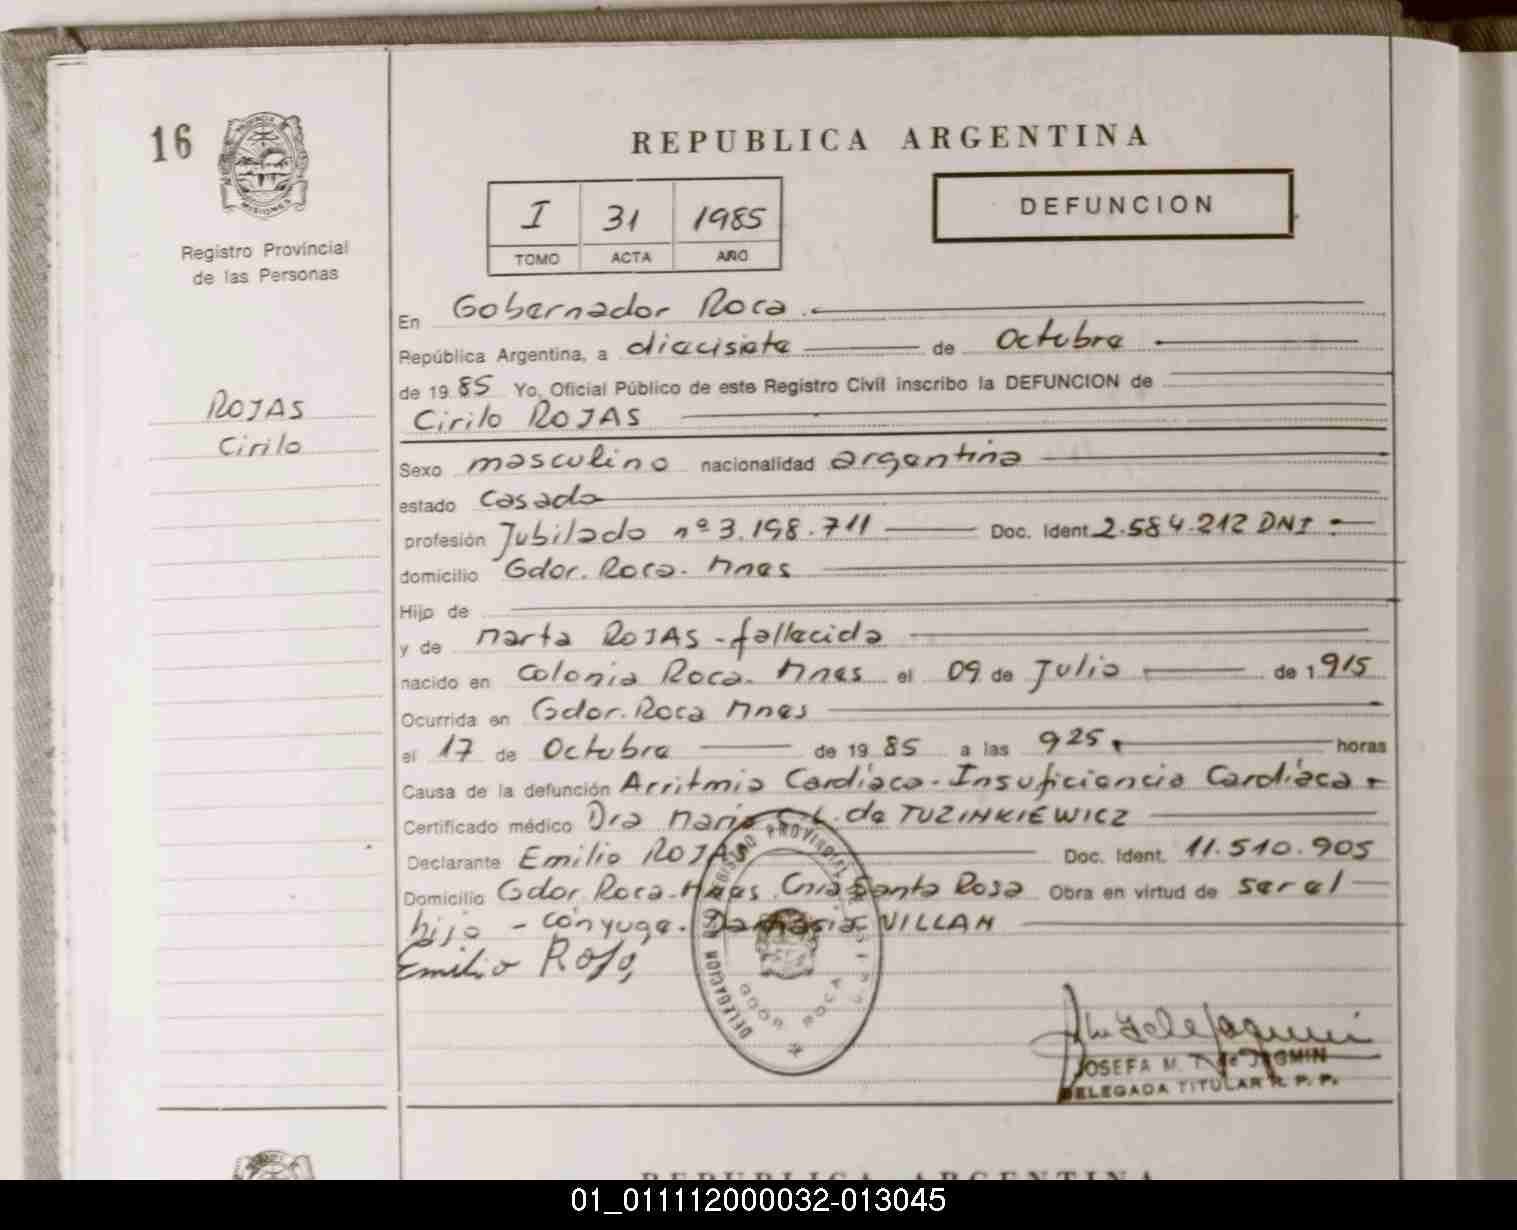 16
PROVINCIA DE
MISIONES
Registro Provincial
de las Personas
ROJAS
Cirilo
REPUBLICA ARGENTINA
I 31 1985
TOMO ACTA AÑO
DEFUNCION
En Gobernador Roca.
República Argentina, a diecisiete de Octubre
de 1985 Yo, Oficial Público de este Registro Civil inscribo la DEFUNCION de
Cirilo ROJAS
Sexo masculino nacionalidad argentina
estado Casado
profesión Jubilado nº 3.198.711 Doc. Ident. 2.584.212 DNI.
domicilio Gdor. Roca. Mnes
Hijo de
y de Marta ROJAS - fallecida
nacido en Colonia Roca. Mnes el 09 de Julio de 1915
Ocurrida en Gdor. Roca Mnes
el 17 de Octubre de 1985 a las 925. horas
Causa de la defunción Arritmia Cardíaca - Insuficiencia Cardíaca -
Certificado médico Dra María L. de TUZINKIEWICZ
Declarante Emilio ROJAS Doc. Ident. 11.510.905
Domicilio Gdor. Roca - Mnes. Cnia Santa Rosa Obra en virtud de ser el
hijo - cónyuge. VILLAN
Emilio Rojas
DELEGACION REGISTRO PROVINCIAL
GDOR ROCA
JOSEFA M. de JAQMIN
DELEGADA TITULAR R. P. P.
REPUBLICA ARGENTINA
01_011112000032-013045